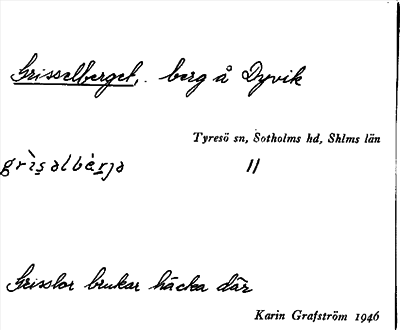 Grisselberget, berg å Dyvik
Tyresö sn, Sotholms hd, Shlms län
grìsəlbærjə 11
Grisslor brukar häcka där
Karin Grafström 1946